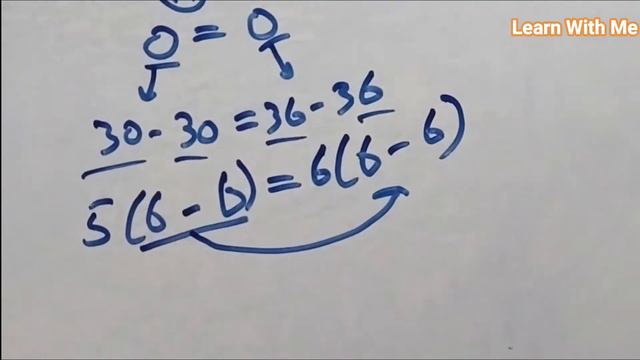 Learn With Me
0 = 0
30 - 30 = 36 - 36
5(6 - 6) = 6(6 - 6)